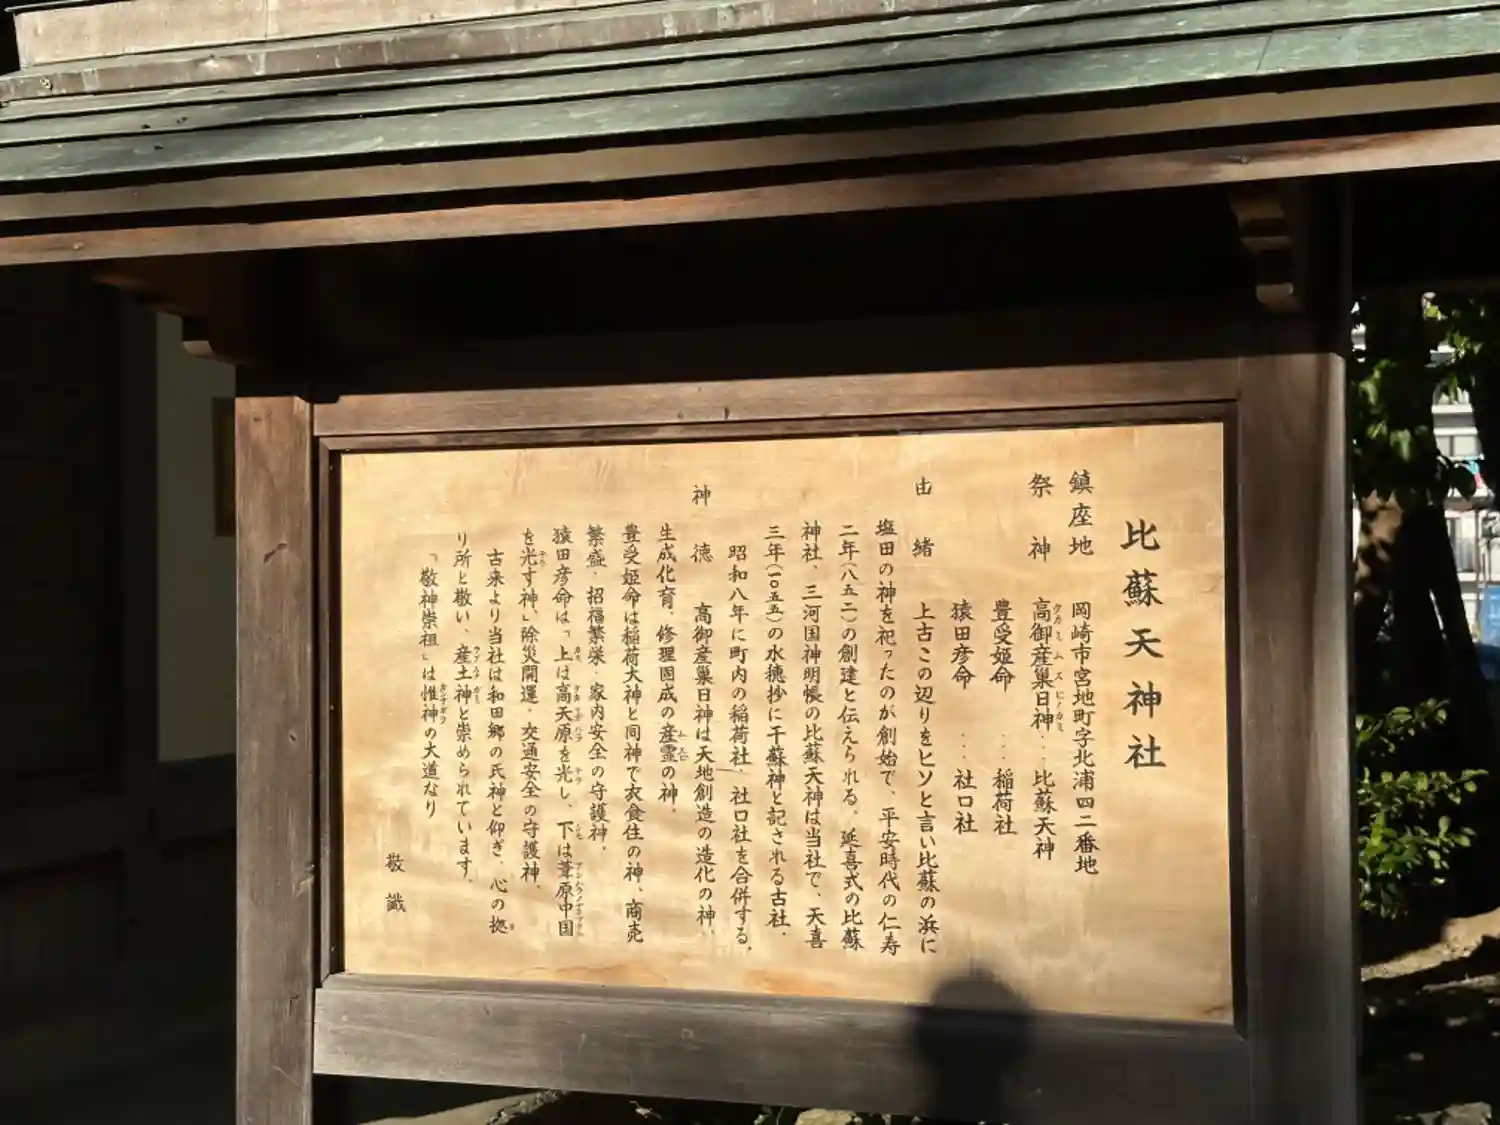 比蘇天神社
鎮座地 岡崎市宮地町字北浦四二番地
祭神 高御産巣日神…比蘇天神
タカミムスヒノカミ
豊受姫命…稲荷社
猿田彦命…社口社
由緒 上古この辺りをヒソと言い比蘇の浜に
塩田の神を祀ったのが創始で、平安時代の仁寿
二年(八五二)の創建と伝えられる。延喜式の比蘇
神社、三河国神明帳の比蘇天神は当社で、天喜
三年(一〇五五)の水穂抄に千蘇神と記される古社。
昭和八年に町内の稲荷社、社口社を合併する。
神徳 高御産巣日神は天地創造の造化の神、
生成化育、修理固成の産霊の神。
ムスビ
豊受姫命は稲荷大神と同神で衣食住の神、商売
繁盛、招福繁栄、家内安全の守護神。
猿田彦命は「上は高天原を光し、下は葦原中国
カミ タカマガハラ テラ シモ アシハラノナカツクニ
を光す神」除災開運、交通安全の守護神、
テラ
古来より当社は和田郷の氏神と仰ぎ、心の拠
ヨ
り所と敬い、産土神と崇められています。
ウブスナガミ
「敬神崇祖」は惟神の大道なり
カンナガラ
敬識